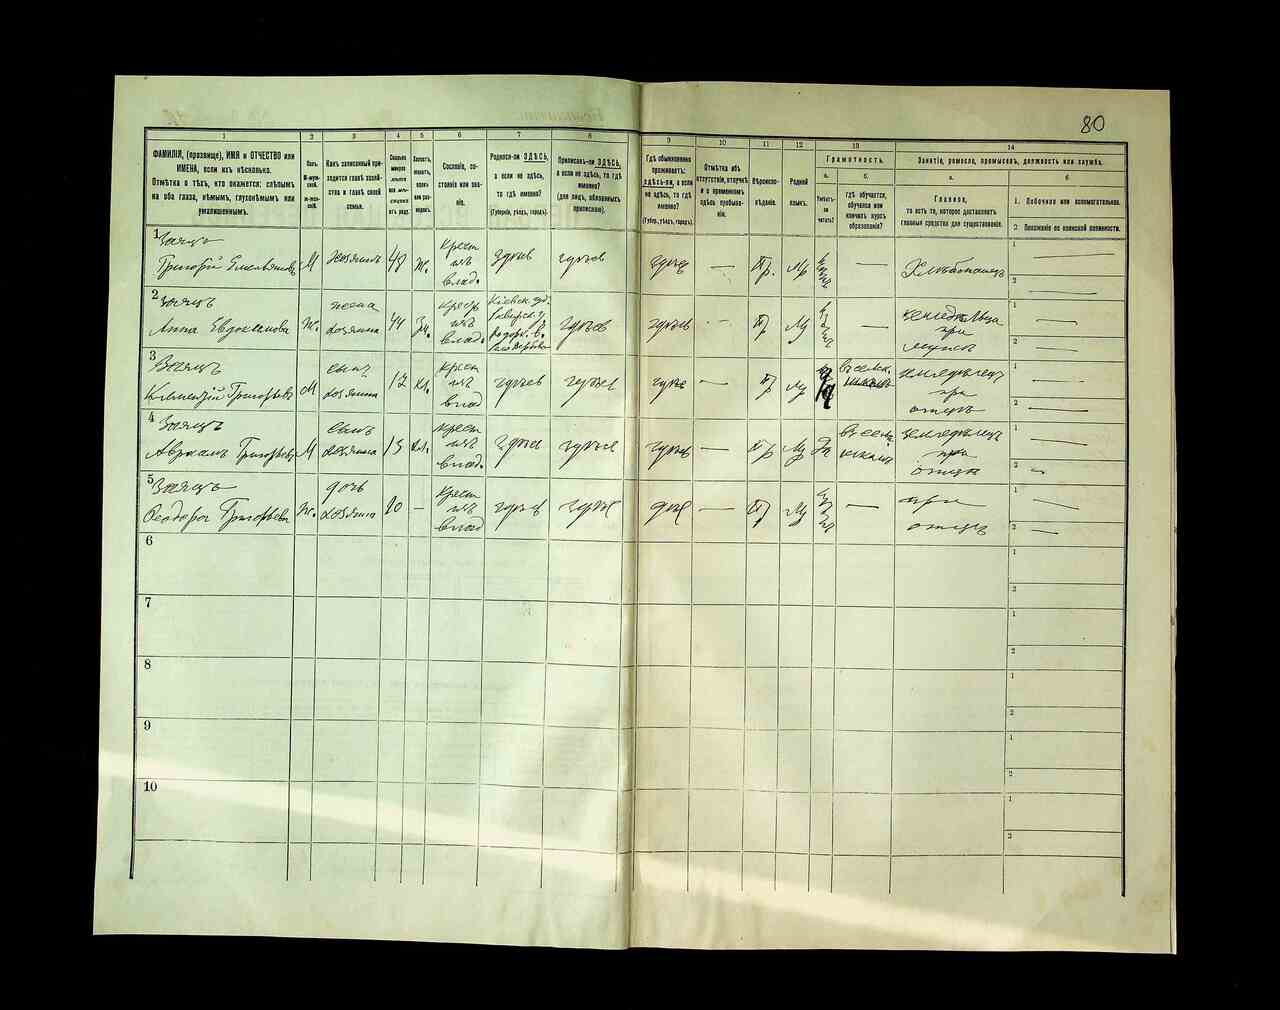 80
1
2
3
4
5
6
7
8
9
10
11
12
13
14
ФАМИЛІЯ, (прозвище), ИМЯ и ОТЧЕСТВО или
ИМЕНА, если ихъ нѣсколько.
Отмѣтка о тѣхъ, кто окажется: слѣпымъ
на оба глаза, нѣмымъ, глухонѣмымъ или
умалишеннымъ.
Полъ.
М-муж-
ской.
Ж-жен-
скій.
Какъ записанный при-
ходится главѣ хозяй-
ства и главѣ своей
семьи.
Сословіе, со-
стояніе или зва-
ніе.
Родился-ли ЗДѢСЬ,
а если не здѣсь,
то гдѣ именно?
(Губернія, уѣздъ, городъ).
Приписанъ-ли ЗДѢСЬ,
а если не здѣсь, то гдѣ
именно?
(для лицъ, обязанныхъ
припискою).
Гдѣ обыкновенно
проживаетъ:
здѣсь-ли, а если
не здѣсь, то гдѣ
именно?
(Губер., уѣздъ, городъ).
Отмѣтка объ
отсутствіи, отлучкѣ
и о временномъ
здѣсь пребыва-
ніи.
Вѣроиспо-
вѣданіе.
Родной
языкъ.
Грамотность.
а.
Умѣетъ-
ли
читать?
б.
гдѣ обучается,
обучался или
кончилъ курсъ
образованія?
Занятіе, ремесло, промыселъ, должность или служба.
а.
Главное,
то есть то, которое доставляетъ
главныя средства для существованія.
б.
1. Побочное или вспомогательное.
2. Положеніе по воинской повинности.
1
Заяцъ
Григорій Емельяновъ
М
хозяинъ
48
Ж.
Крест
изъ
влад.
здѣсь
здѣсь
здѣсь
—
Пр.
Мр
—
Хлѣбопашец
1
2
2
Заяцъ
Анна Евдокимова
Ж.
жена
хозяина
44
Зм.
крест
изъ
влад.
Кіевск. губ.
здѣсь
здѣсь
—
Пр
Мр
—
земледѣлица
при
мужѣ
1
2
3
Заяцъ
Климентій Григорьевъ
М
сынъ
хозяина
17
хл.
крест
изъ
влад
здѣсь
здѣсь
здѣсь
—
Пр
Мр
въ сельск.
школѣ
земледѣлец
при
отцѣ
1
2
4
Заяцъ
Авраамъ Григорьевъ
М
сынъ
хозяина
13
хл.
крест
изъ
влад.
здѣсь
здѣсь
здѣсь
—
Пр
Мр
Да
въ сельс.
школѣ
земледѣлец
при
отцѣ
1
2
5
Заяцъ
Феодора Григорьева
Ж.
дочь
хозяина
20
—
крест
изъ
влад
здѣсь
здѣсь
здѣсь
—
Пр
Мр
—
при
отцѣ
1
2
6
1
2
7
1
2
8
1
2
9
1
2
10
1
2